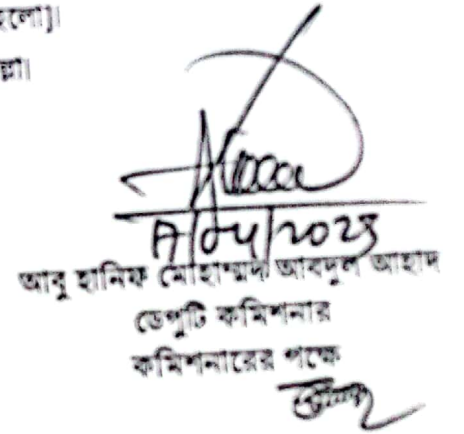 হলো]।
ল্লা।
17/04/2025
আবু হানিফ মোহাম্মদ আবদুল আহাদ
ডেপুটি কমিশনার
কমিশনারের পক্ষে